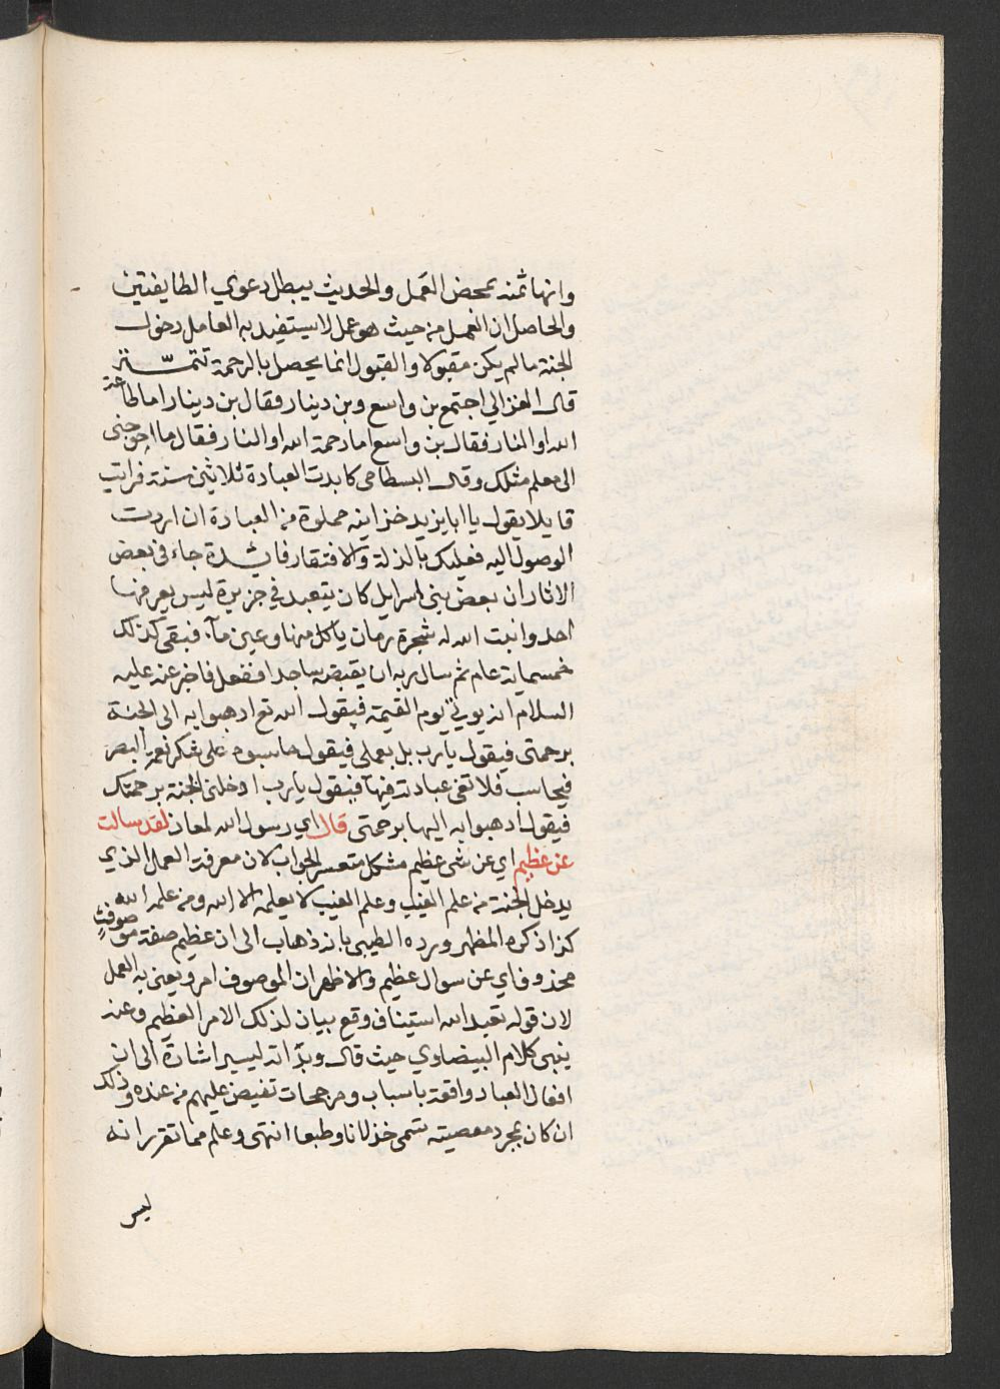 وانها ثمنه بمحض العمل والحديث يبطل دعوي الطايفتين
والحاصل ان العمل من حيث هو عمل لا يستفيد به العامل دخول
الجنة ما لم يكن مقبولا والقبول انما يحصل بالرحمة تتمة
قال الغزالي اجتمع بن واسع وبن دينار فقال بن دينار اما طاعة
الله او النار فقال بن واسع اما رحمة الله او النار فقال ما احوجنى
الى معلم مثلك وقال البسطامى كابدت العبادة ثلاثين سنة فرايت
قايلا يقول يا ابا يزيد خزاينه مملوة من العبادة ان اردت
الوصول اليه فعليك بالذلة والافتقار فايدة جاء فى بعض
الاثار ان بعض بنى اسرايل كان يتعبد في جزيرة ليس يعرفها
احد وانبت الله له شجرة رمان ياكل منها وعين مآء فبقى كذلك
خمسماية عام ثم سال ربه ان يقبضه ساجدا ففعل فاخبر عنه عليه
السلام انه يوتى يوم القيمة فيقول الله تع اذهبوا به الى الجنة
برحمتى فيقول يارب بل بعملى فيقول حاسبوه على شكر نعمة البصر
فيحاسب فلا تفى عبادته فيها فيقول يارب ادخلنى الجنة برحمتك
فيقول اذهبوا به اليها برحمتى قال اي رسول الله لمعاذ لقد سالت
عن عظيم اي عن شى عظيم مشكل متعسر الجواب لان معرفة العمل الذي
يدخل الجنة من علم الغيب وعلم الغيب لا يعلمه الا الله ومن علمه الله
كذا ذكره المظهر ورده الطيبى بانه ذهاب الى ان عظيم صفة موصوف
محذوف اي عن سوال عظيم والاظهر ان الموصوف امر ويعنى به العمل
لان قوله تعبد الله استيناف وقع بيان لذلك الامر العظيم وعنه
ينبى كلام البيضاوي حيث قال وبو انه ليسير اشارة الى ان
افعال العباد واقعة باسباب ومرجحات تفيض عليهم من عنده وذلك
ان كان بمجرد معصيته يتمى خذلانا وطبعا انتهى وعلم مما تقرر انه
ليس